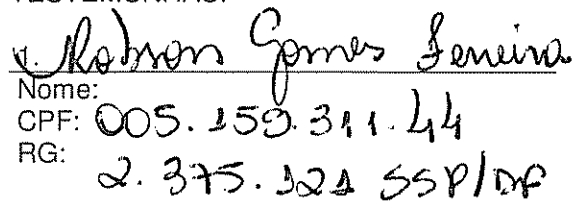 TESTEMUNHAS:
1. Robson Gomes Ferreira
Nome:
CPF: 005.159.311.44
RG: 2.375.121 SSP/DF